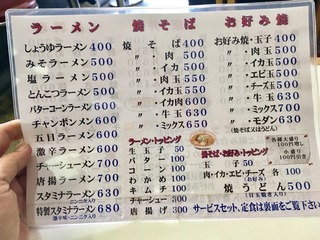 ラーメン
しょうゆラーメン 400
みそラーメン 500
塩ラーメン 500
とんこつラーメン 500
バターコーンラーメン 600
チャンポンメン 600
五目ラーメン 600
激辛ラーメン 600
チャーシューメン 700
唐揚ラーメン 700
スタミナラーメン 630
ニンニク入り
特製スタミナラーメン 680
激辛味・ニンニク入り
焼そば
焼そば 400
〃・肉 500
〃・イカ 500
〃・肉玉 550
〃・イカ玉 550
〃・イカ肉 600
〃・牛玉 630
〃・ミックス 650
お好み焼
お好み焼・玉子 400
〃・肉玉 500
〃・イカ玉 500
〃・エビ玉 500
〃・チーズ玉 500
〃・牛玉 630
〃・ミックス 700
〃・モダン 630
(焼そば又はうどん)
ラーメン・トッピング
生玉子 50
バター 100
コーン 100
わかめ 100
キムチ 100
チャーシュー 300
唐揚げ 300
焼そば・お好み・トッピング
玉子 50
肉・イカ・エビ・チーズ 各100
焼うどん 500
(目玉焼き入り)
各種大盛り
100円増し
小盛り
100円引き
サービスセット、定食は裏面をご覧下さい